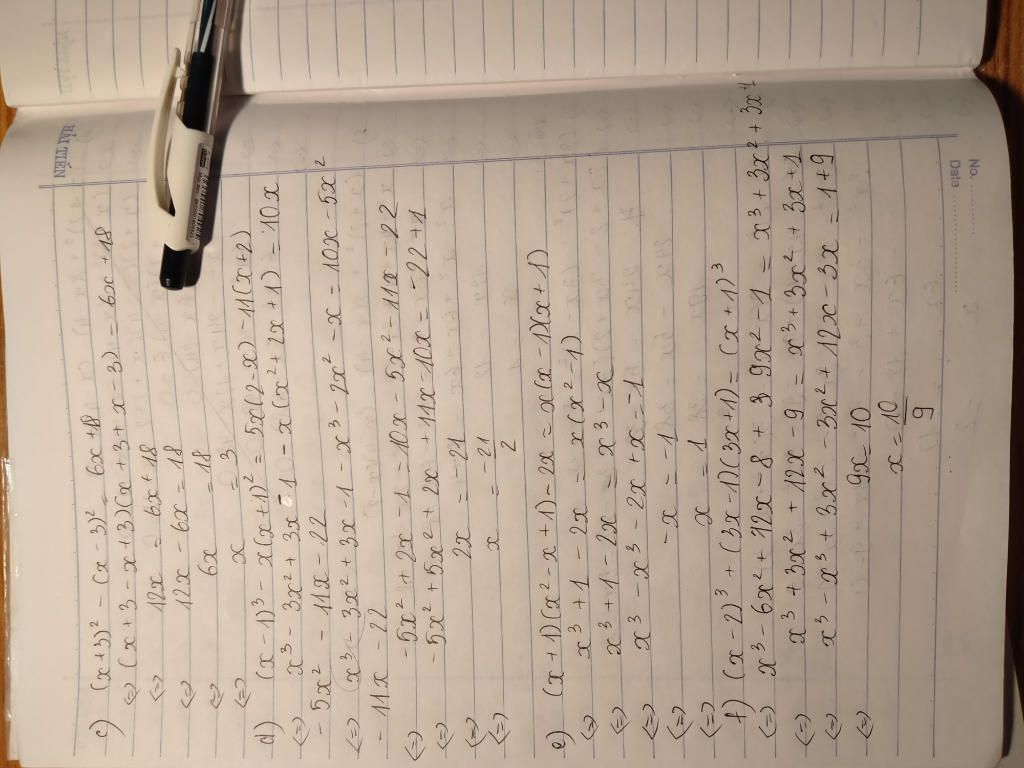 HẢI TIẾN
No.
Data
c) (x+3)² - (x-3)² = 6x+18
(=) (x+3-x+3)(x+3+x-3) = 6x+18
(=) 12x = 6x+18
(=) 12x - 6x = 18
(=) 6x = 18
(=) x = 3
d) (x-1)³ - x(x+1)² = 5x(2-x) - 11(x+2)
(=) x³ - 3x² + 3x - 1 - x(x² + 2x + 1) = 10x
- 5x² - 11x - 22
(=) x³ - 3x² + 3x - 1 - x³ - 2x² - x = 10x - 5x²
- 11x - 22
(=) - 5x² + 2x - 1 = 10x - 5x² - 11x - 22
(=) - 5x² + 5x² + 2x + 11x - 10x = - 22 + 1
(=) 2x = - 21
(=) x = -21/2
e) (x+1)(x² - x + 1) - 2x = x(x-1)(x+1)
(=) x³ + 1 - 2x = x(x² - 1)
(=) x³ + 1 - 2x = x³ - x
(=) x³ - x³ - 2x + x = -1
(=) - x = - 1
(=) x = 1
f) (x-2)³ + (3x-1)(3x+1) = (x+1)³
(=) x³ - 6x² + 12x - 8 + 9x² - 1 = x³ + 3x² + 3x + 1
(=) x³ + 3x² + 12x - 9 = x³ + 3x² + 3x + 1
(=) x³ - x³ + 3x² - 3x² + 12x - 3x = 1 + 9
(=) 9x = 10
x = 10/9